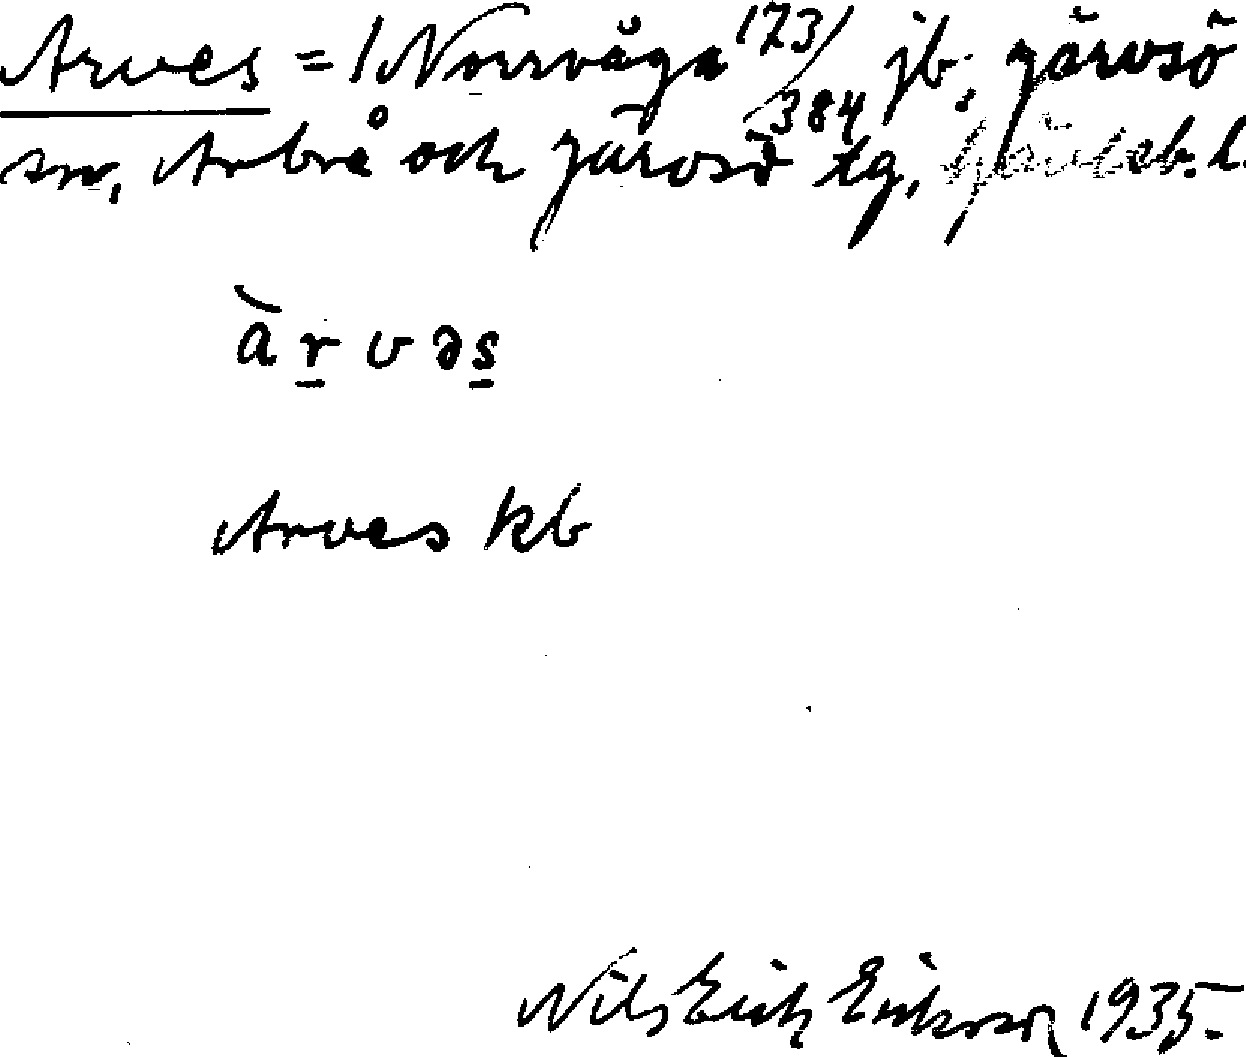 Arves = 1 Norrvåga 173/384 jb, Järvsö
sn, Arbrå och Järvsö tg, Gävleb. l.
àrvəs
Arves kb
Nils Erik Eriksson 1935.